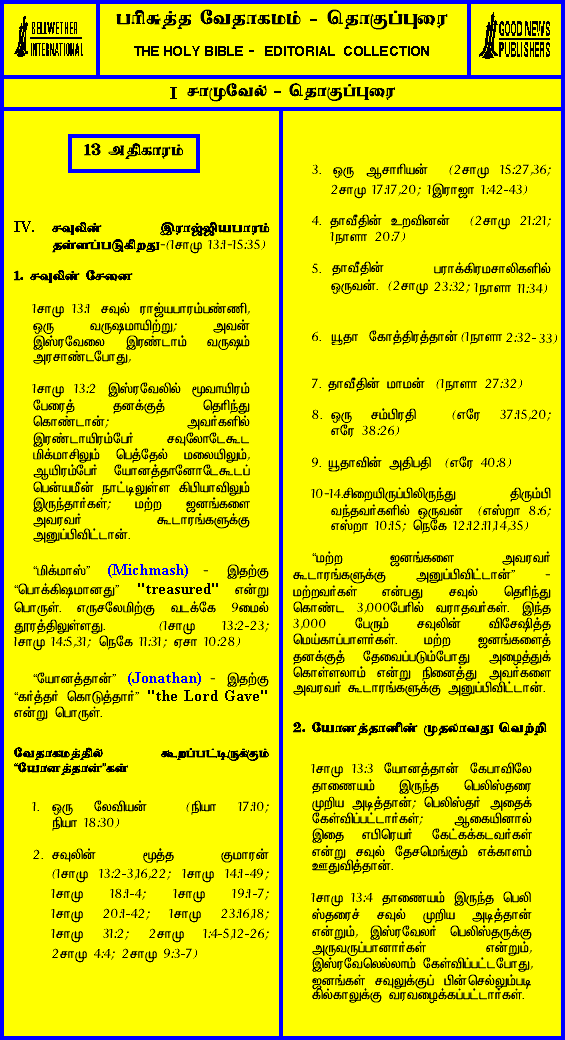 BELLWETHER
INTERNATIONAL
பரிசுத்த வேதாகமம் - தொகுப்புரை
THE HOLY BIBLE - EDITORIAL COLLECTION
GOOD NEWS
PUBLISHERS
I சாமுவேல் - தொகுப்புரை
13 அதிகாரம்
IV. சவுலின் இராஜ்ஜியபாரம்
தள்ளப்படுகிறது-(1சாமு 13:1-15:35)
1. சவுலின் சேனை
1சாமு 13:1 சவுல் ராஜ்யபாரம்பண்ணி,
ஒரு வருஷமாயிற்று; அவன்
இஸ்ரவேலை இரண்டாம் வருஷம்
அரசாண்டபோது,
1சாமு 13:2 இஸ்ரவேலில் மூவாயிரம்
பேரைத் தனக்குத் தெரிந்து
கொண்டான்; அவர்களில்
இரண்டாயிரம்பேர் சவுலோடேகூட
மிக்மாசிலும் பெத்தேல் மலையிலும்,
ஆயிரம்பேர் யோனத்தானோடேகூடப்
பென்யமீன் நாட்டிலுள்ள கிபியாவிலும்
இருந்தார்கள்; மற்ற ஜனங்களை
அவரவர் கூடாரங்களுக்கு
அனுப்பிவிட்டான்.
“மிக்மாஸ்” (Michmash) - இதற்கு
“பொக்கிஷமானது” "treasured" என்று
பொருள். எருசலேமிற்கு வடக்கே 9மைல்
தூரத்திலுள்ளது. (1சாமு 13:2-23;
1சாமு 14:5,31; நெகே 11:31; ஏசா 10:28)
“யோனத்தான்” (Jonathan) - இதற்கு
“கர்த்தர் கொடுத்தார்” "the Lord Gave"
என்று பொருள்.
வேதாகமத்தில் கூறப்பட்டிருக்கும்
“யோனத்தான்”கள்
1. ஒரு லேவியன் (நியா 17:10;
நியா 18:30)
2. சவுலின் மூத்த குமாரன்
(1சாமு 13:2-3,16,22; 1சாமு 14:1-49;
1சாமு 18:1-4; 1சாமு 19:1-7;
1சாமு 20:1-42; 1சாமு 23:16,18;
1சாமு 31:2; 2சாமு 1:4-5,12-26;
2சாமு 4:4; 2சாமு 9:3-7)
3. ஒரு ஆசாரியன் (2சாமு 15:27,36;
2சாமு 17:17,20; 1இராஜா 1:42-43)
4. தாவீதின் உறவினன் (2சாமு 21:21;
1நாளா 20:7)
5. தாவீதின் பராக்கிரமசாலிகளில்
ஒருவன். (2சாமு 23:32; 1நாளா 11:34)
6. யூதா கோத்திரத்தான் (1நாளா 2:32-33)
7. தாவீதின் மாமன் (1நாளா 27:32)
8. ஒரு சம்பிரதி (எரே 37:15,20;
எரே 38:26)
9. யூதாவின் அதிபதி (எரே 40:8)
10-14.சிறையிருப்பிலிருந்து திரும்பி
வந்தவர்களில் ஒருவன் (எஸ்றா 8:6;
எஸ்றா 10:15; நெகே 12:12:11,14,35)
“மற்ற ஜனங்களை அவரவர்
கூடாரங்களுக்கு அனுப்பிவிட்டான்” -
மற்றவர்கள் என்பது சவுல் தெரிந்து
கொண்ட 3,000பேரில் வராதவர்கள். இந்த
3,000 பேரும் சவுலின் விசேஷித்த
மெய்காப்பாளர்கள். மற்ற ஜனங்களைத்
தனக்குத் தேவைப்படும்போது அழைத்துக்
கொள்ளலாம் என்று நினைத்து அவர்களை
அவரவர் கூடாரங்களுக்கு அனுப்பிவிட்டான்.
2. யோனத்தானின் முதலாவது வெற்றி
1சாமு 13:3 யோனத்தான் கேபாவிலே
தாணையம் இருந்த பெலிஸ்தரை
முறிய அடித்தான்; பெலிஸ்தர் அதைக்
கேள்விப்பட்டார்கள்; ஆகையினால்
இதை எபிரெயர் கேட்கக்கடவர்கள்
என்று சவுல் தேசமெங்கும் எக்காளம்
ஊதுவித்தான்.
1சாமு 13:4 தாணையம் இருந்த பெலி
ஸ்தரைச் சவுல் முறிய அடித்தான்
என்றும், இஸ்ரவேலர் பெலிஸ்தருக்கு
அருவருப்பானார்கள் என்றும்,
இஸ்ரவேலெல்லாம் கேள்விப்பட்டபோது,
ஜனங்கள் சவுலுக்குப் பின்செல்லும்படி
கில்காலுக்கு வரவழைக்கப்பட்டார்கள்.